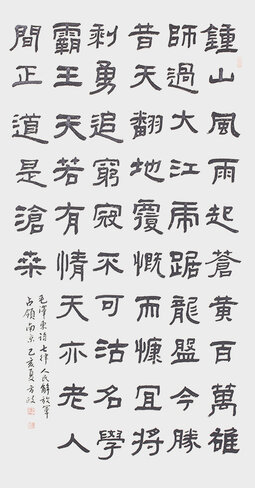 鍾山風雨起蒼黃百萬雄
師過大江虎踞龍盤今勝
昔天翻地覆慨而慷宜將
剩勇追窮寇不可沽名學
霸王天若有情天亦老人
間正道是滄桒
毛澤東詩七律人民解放軍
占領南京己亥夏方政